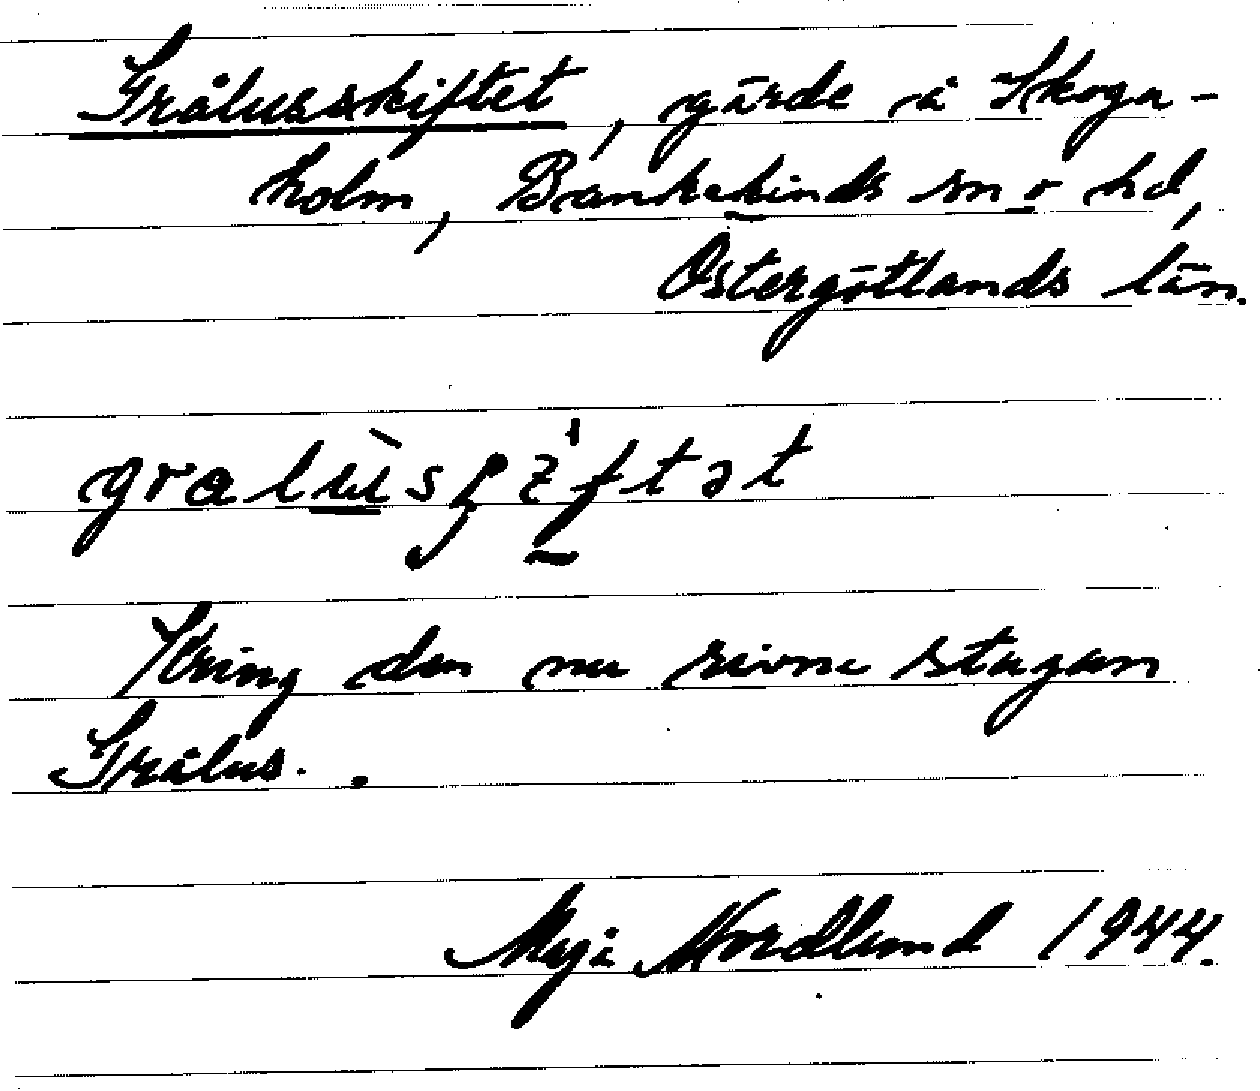 Grålusskiftet, gärde å Skoga-
holm, Bankekinds sn o hd,
Östergötlands län.
Kring den nu rivna stugan
Grålus.
Maja Nordlund 1944.